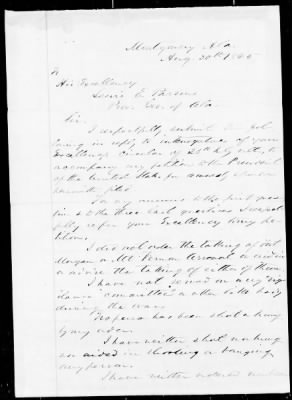 Montgomery Ala.
Aug. 30th 1865
To
His Excellency
Lewis E. Parsons
Prov. Gov. of Ala.
Sir:
I respectfully submit the fol
lowing in reply to interrogatories of your
Excellency's circular of
accompany my petition to the President
of the United States for
filed
For my answer to the first ques
tion & to the three last questions I respect
fully refer your Excellency to my pe
tition.
I did not order the taking of Fort
Morgan or Mt. Vernon Arsenal or aid in
or advise the taking of either of them
I have not served on any "vigi
lance" committee or other like body
during the war.
No person has been shot or hung
by my order.
I have neither shot nor hung
nor aided in shooting or hanging
any person.
I have neither